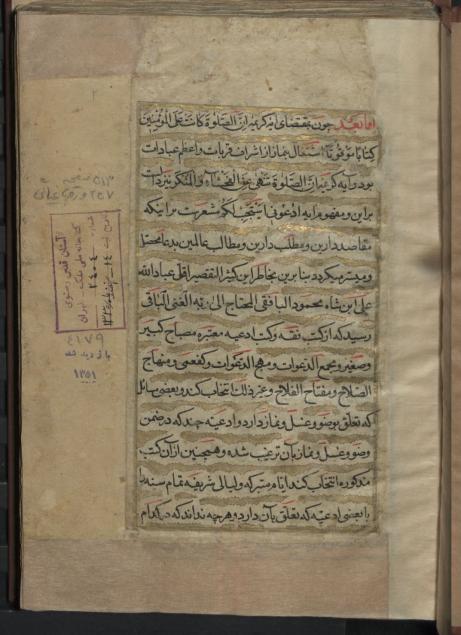 اما بعد چون بمقتضای آیه کریمه ان الصلوة کانت علی المؤمنین
کتابا موقوتا اشتغال بنماز از اشراف قربات و اعظم عبادات
بود و آیه کریمه ان الصلوة تنهی عن الفحشاء و المنکر نیز دالست
براین و مفهوم آیه ادعونی استجب لکم مشعرست براینکه
مقاصد دارین و مطلب دارین و مطالب عالمین بدعا حصل
و میسر میکردد بنا برین بخاطر این کثیر التقصیر اقل عباد الله
علی ابن شاه محمود البافقی المحتاج الی ربه الغنی الباقی
رسید که از کتب فقه و کتب ادعیه معتبره مصباح کبیر
و صغیر و مجمع الدعوات و مهج الدعوات و کفعمی و منهاج
الصلاح و مفتاح الفلاح و غیر ذلک انتخاب کند و بعضی مسائل
که تعلق بوضو و غسل و نماز دارد و ادعیه چند که در ضمن
وضو و غسل و نماز بآن ترغیب شده و همچنین از آن کتب
مذکوره انتخاب کند ایام متبرکه و لیالی شریفه تمام سنه را
با بعضی ادعیه که تعلق بآن دارد و هرچه نداند که در کدام
آستان قدس رضوی
کتابخانه ملی ملک تهران
۴۱۷۹
بازدید شد
۱۳۵۱